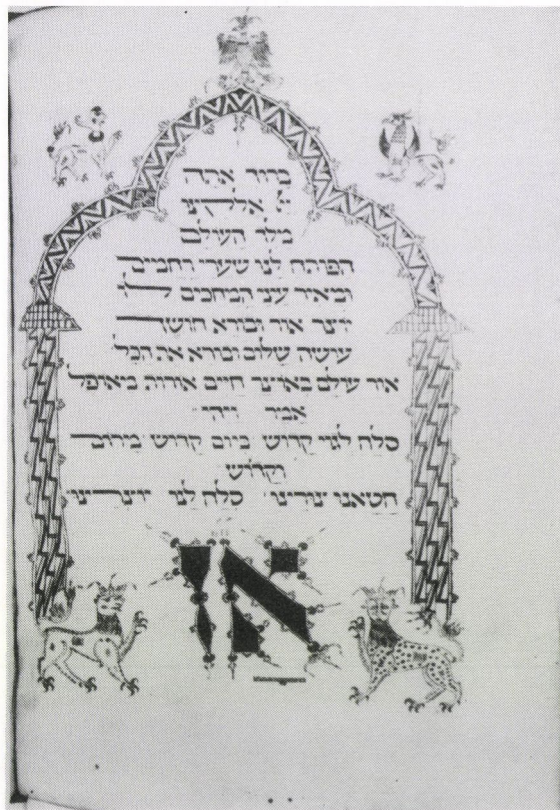 ברוך אתה
יי אלהינו
מלך העולם
הפותח לנו שערי רחמים
ומאיר עיני המחכים
יוצר אור ובורא חושך
עושה שלום ובורא את הכל
אור עולם באוצר חיים אורות מאופל
אמר ויהי
סלח לגוי קדוש ביום קדוש מרום
וקדוש
חטאנו צורינו סלח לנו יוצרינו
אז